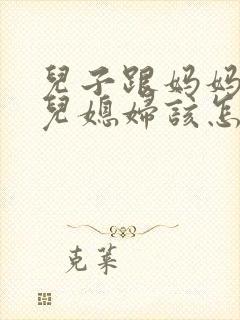 兒子跟媽媽
兒媳婦該怎
克萊